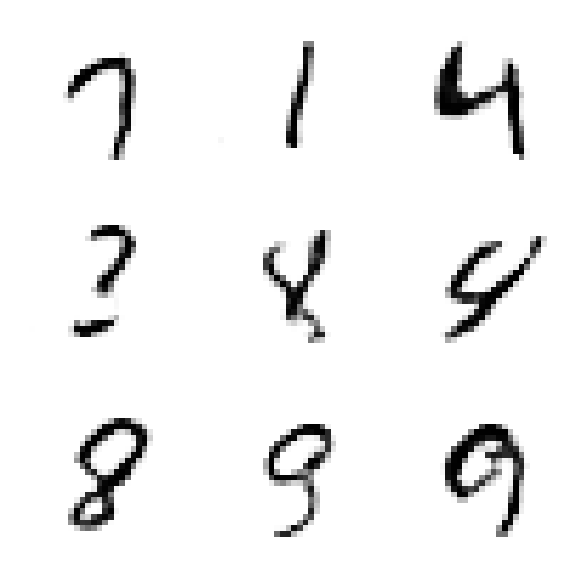 7 1 4
3 8 4
8 9 9